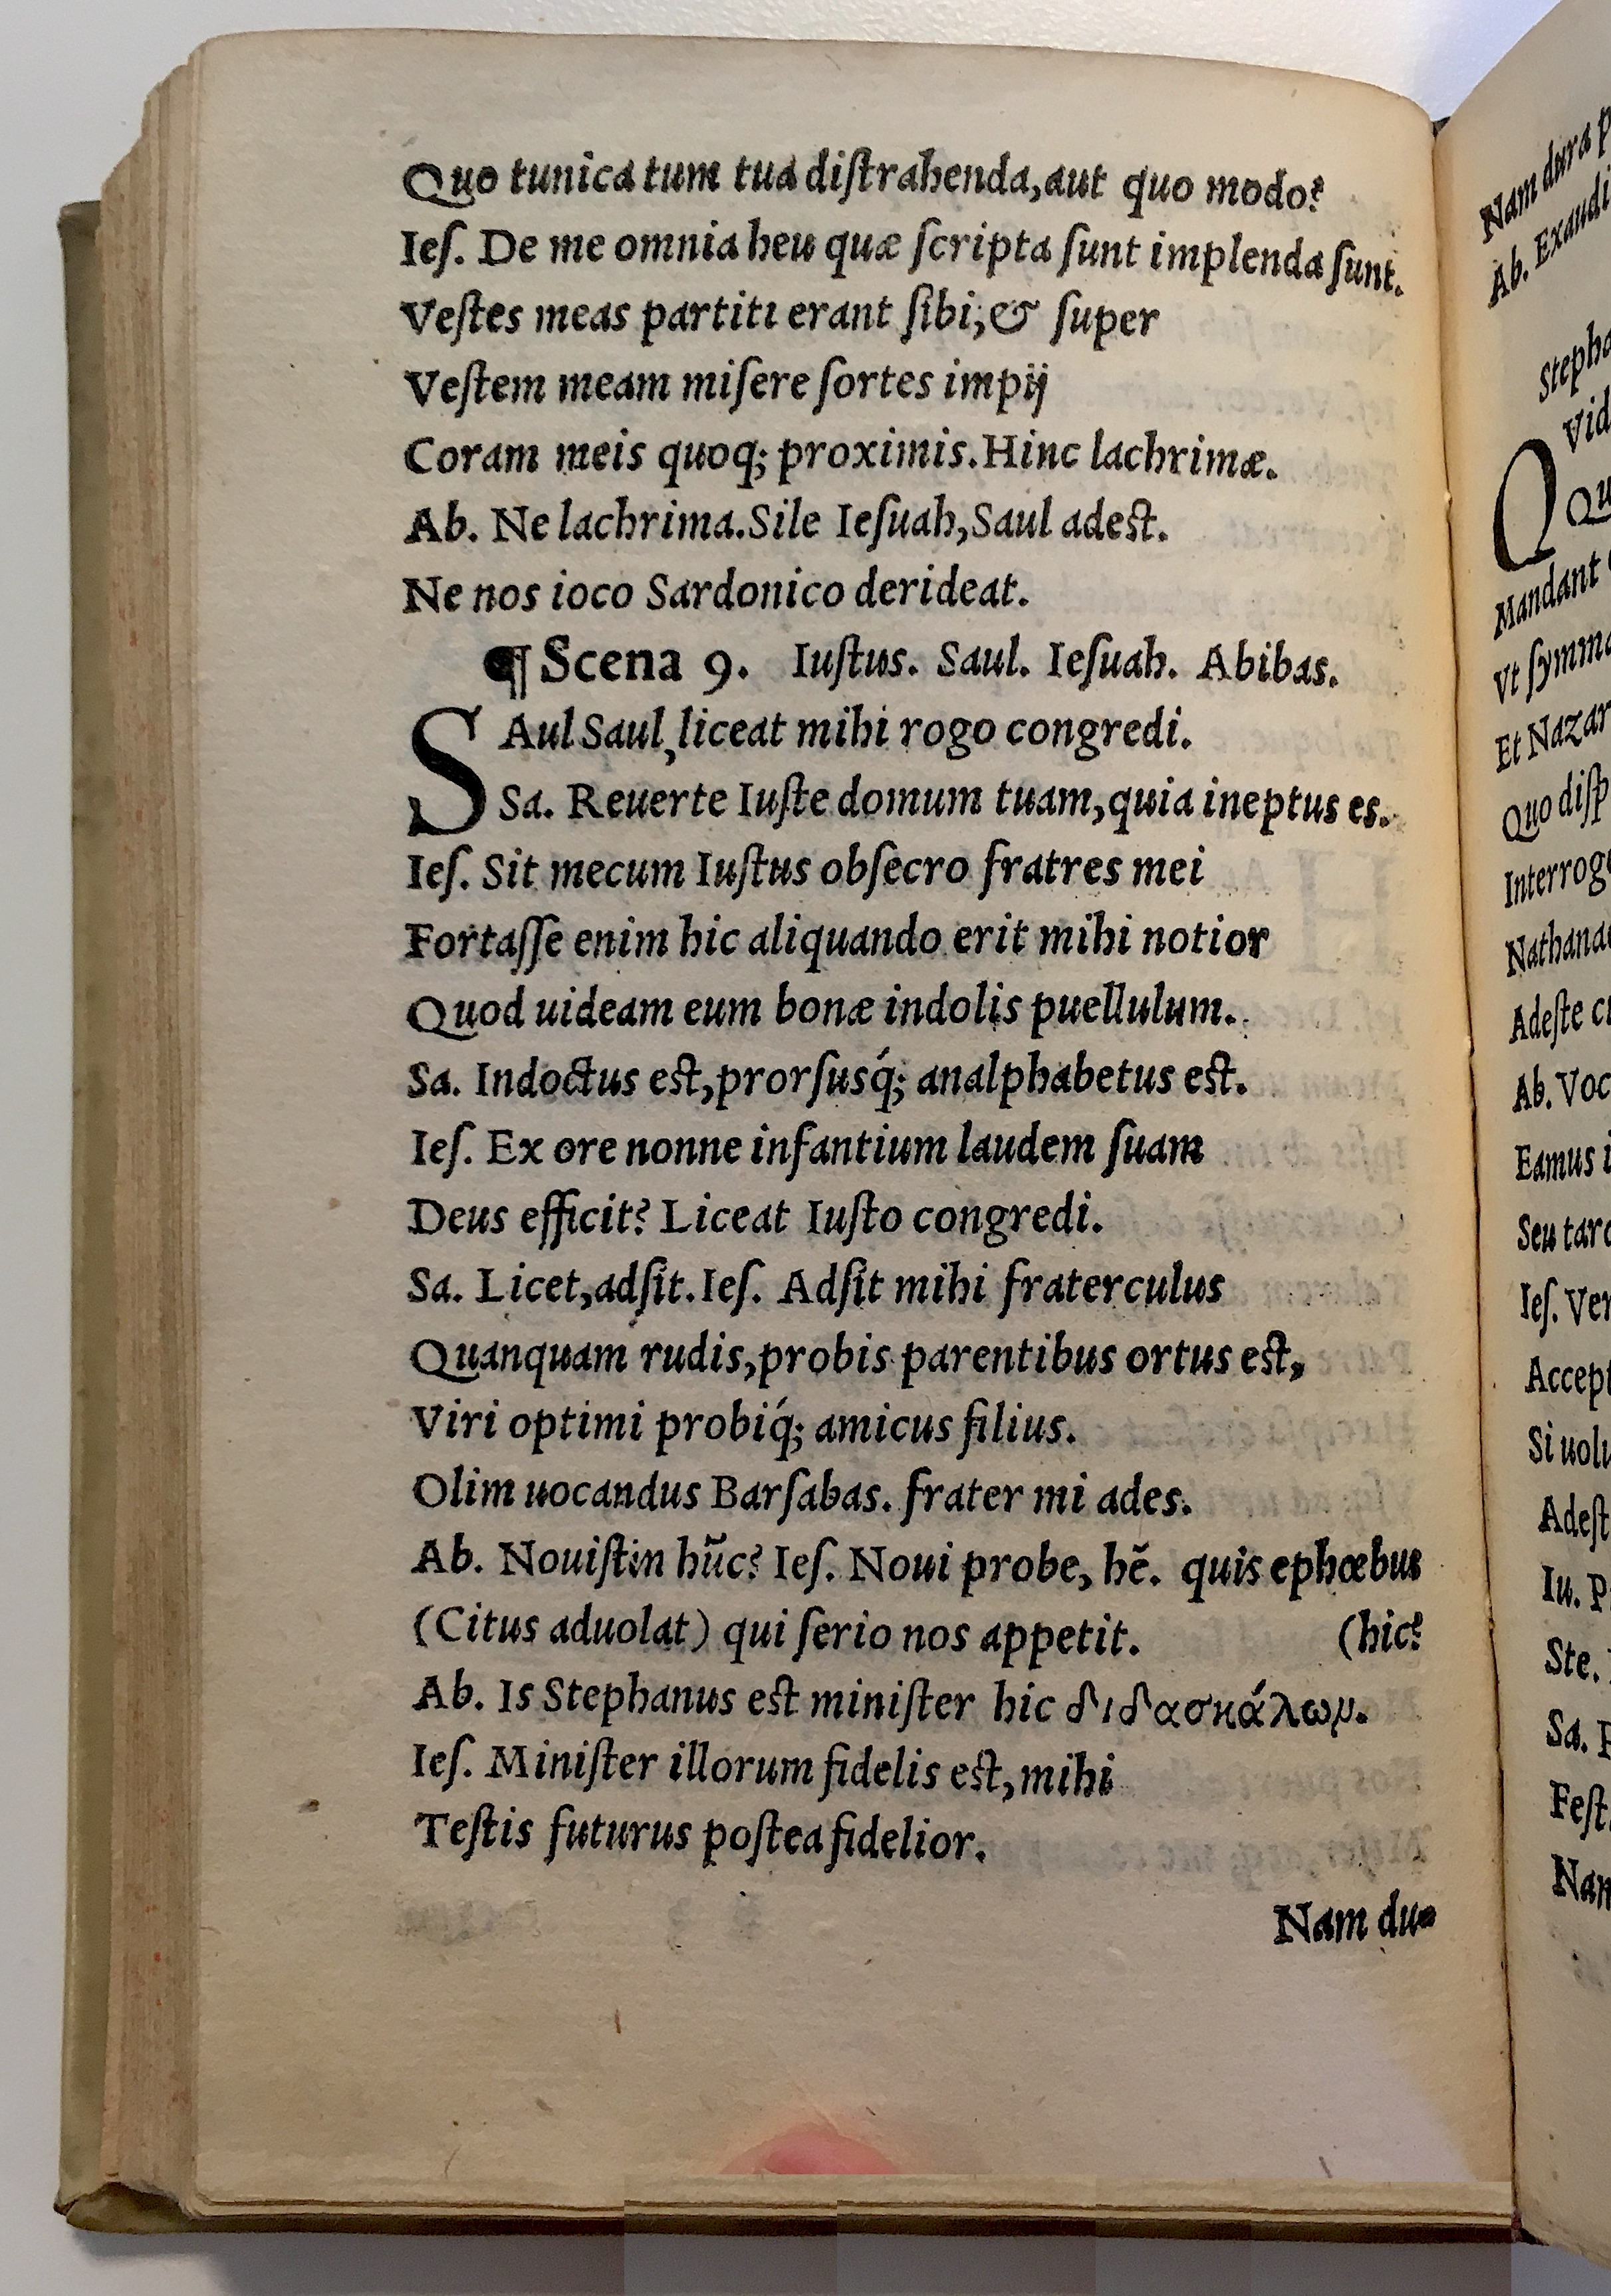 Quo tunica tum tua diſtrahenda, aut quo modo?
Ieſ. De me omnia heu quæ ſcripta ſunt implenda ſunt.
Veſtes meas partiti erant ſibi, & ſuper
Veſtem meam miſere ſortes impij
Coram meis quoq; proximis. Hinc lachrimæ.
Ab. Ne lachrima. Sile Ieſuah, Saul adeſt.
Ne nos ioco Sardonico derideat.
¶ Scena 9. Iuſtus. Saul. Ieſuah. Abibas.
SAul Saul, liceat mihi rogo congredi.
Sa. Reuerte Iuſte domum tuam, quia ineptus es.
Ieſ. Sit mecum Iuſtus obſecro fratres mei
Fortaſſe enim hic aliquando erit mihi notior
Quod uideam eum bonæ indolis puellulum.
Sa. Indoctus eſt, prorſusq́; analphabetus eſt.
Ieſ. Ex ore nonne infantium laudem ſuam
Deus efficit? Liceat Iuſto congredi.
Sa. Licet, adſit. Ieſ. Adſit mihi fraterculus
Quanquam rudis, probis parentibus ortus eſt,
Viri optimi probiq́; amicus filius.
Olim uocandus Barſabas. frater mi ades.
Ab. Nouiſtin hūc? Ieſ. Noui probe, hē. quis ephœbus
(Citus aduolat) qui ſerio nos appetit. (hic?
Ab. Is Stephanus eſt miniſter hic διδασκάλων.
Ieſ. Miniſter illorum fidelis eſt, mihi
Teſtis futurus poſtea fidelior.
Nam du-
Nam dura
Ab. Exaudi
Vid
Mandant
Vt
Et
Quo
Adeſte
Ab.
Eamus
Seu
Ieſ.
Si
Iu.
Ste.
Sa.